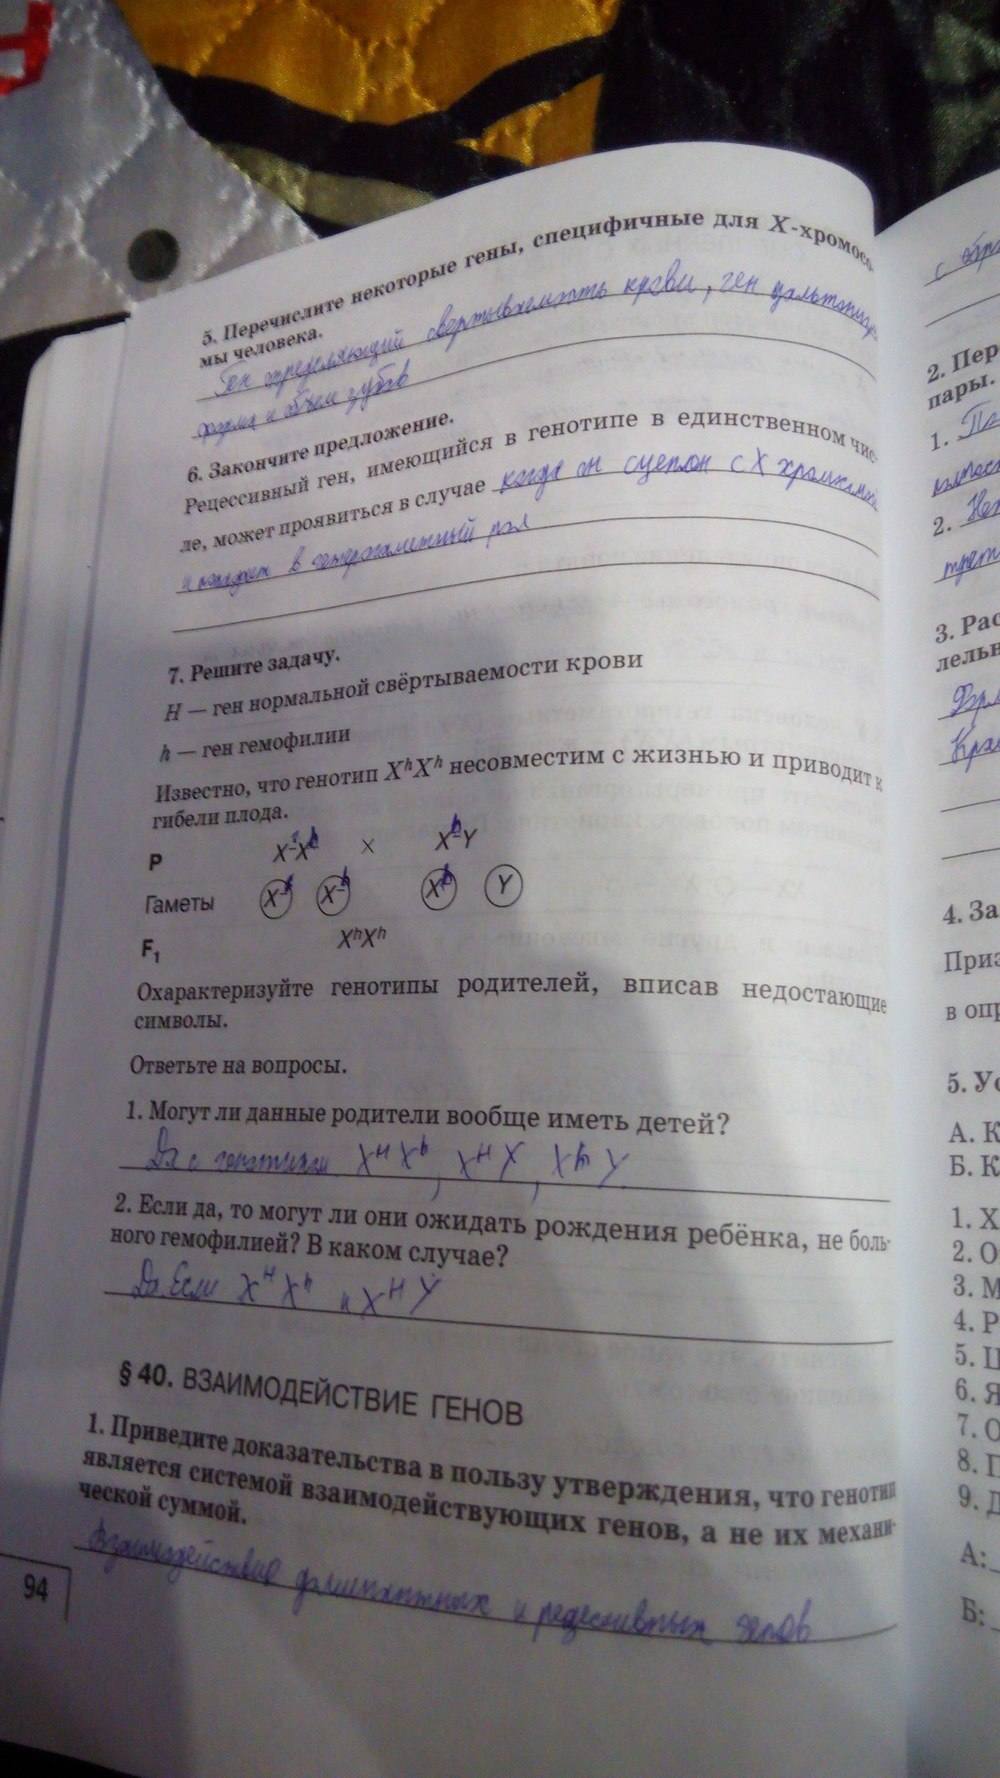 5. Перечислите некоторые гены, специфичные для X-хромосо-
мы человека.
Ген определяющий свертываемость крови, ген дальтонизма
форма и объем зубов
6. Закончите предложение.
Рецессивный ген, имеющийся в генотипе в единственном чис-
ле, может проявиться в случае когда он сцеплен с X
и попадет в гетерогаметный пол
7. Решите задачу.
H — ген нормальной свёртываемости крови
h — ген гемофилии
Известно, что генотип XʰXʰ несовместим с жизнью и приводит к
гибели плода.
P X X × X Y
Гаметы X X X Y
F₁ XʰXʰ
Охарактеризуйте генотипы родителей, вписав недостающие
символы.
Ответьте на вопросы.
1. Могут ли данные родители вообще иметь детей?
Да с XᴴXʰ, XᴴY, XʰY
2. Если да, то могут ли они ожидать рождения ребёнка, не боль-
ного гемофилией? В каком случае?
Да Если XᴴXʰ и XᴴY
§ 40. ВЗАИМОДЕЙСТВИЕ ГЕНОВ
1. Приведите доказательства в пользу утверждения, что генотип
является системой взаимодействующих генов, а не их механи-
ческой суммой.
Взаимодействие доминантных и рецессивных генов
94
2. Пер
пары.
1.
2.
3. Рас
лельн
4. За
Приз
в опр
5. Ус
А. К
Б. К
1. Х
2. О
3. М
4. Р
5. Ц
6. Я
7. О
8. П
9. Д
А:
Б: